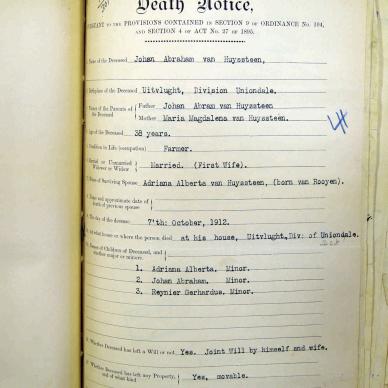 Death Notice,
PURSUANT TO THE PROVISIONS CONTAINED IN SECTION 9 OF ORDINANCE No. 104,
AND SECTION 4 OF ACT No. 27 OF 1895.
Name of the Deceased Johan Abraham van Huyssteen,
Birthplace of the Deceased Uitvlught, Division Uniondale.
Names of the Parents of the Deceased Father Johan Abram van Huyssteen
Mother Maria Magdalena van Huyssteen.
Age of the Deceased 38 years.
Condition in Life (occupation) Farmer.
Married or Unmarried Widower or Widow Married. (First Wife).
Name of Surviving Spouse Adriana Alberta van Huyssteen, (born van Rooyen).
Name and approximate date of death of previous spouse
The day of the decease 7'th: October, 1912.
At what house or where the person died at his house, Uitvlught,Div: of Uniondale.
Names of Children of Deceased, and whether major or minors.
1. Adriana Alberta. Minor.
2. Johan Abraham. Minor.
3. Reynier Gerhardus. Minor.
Whether Deceased has left a Will or not. Yes. Joint Will by himself and wife.
Whether Deceased has left any Property, and of what kind Yes, movable.